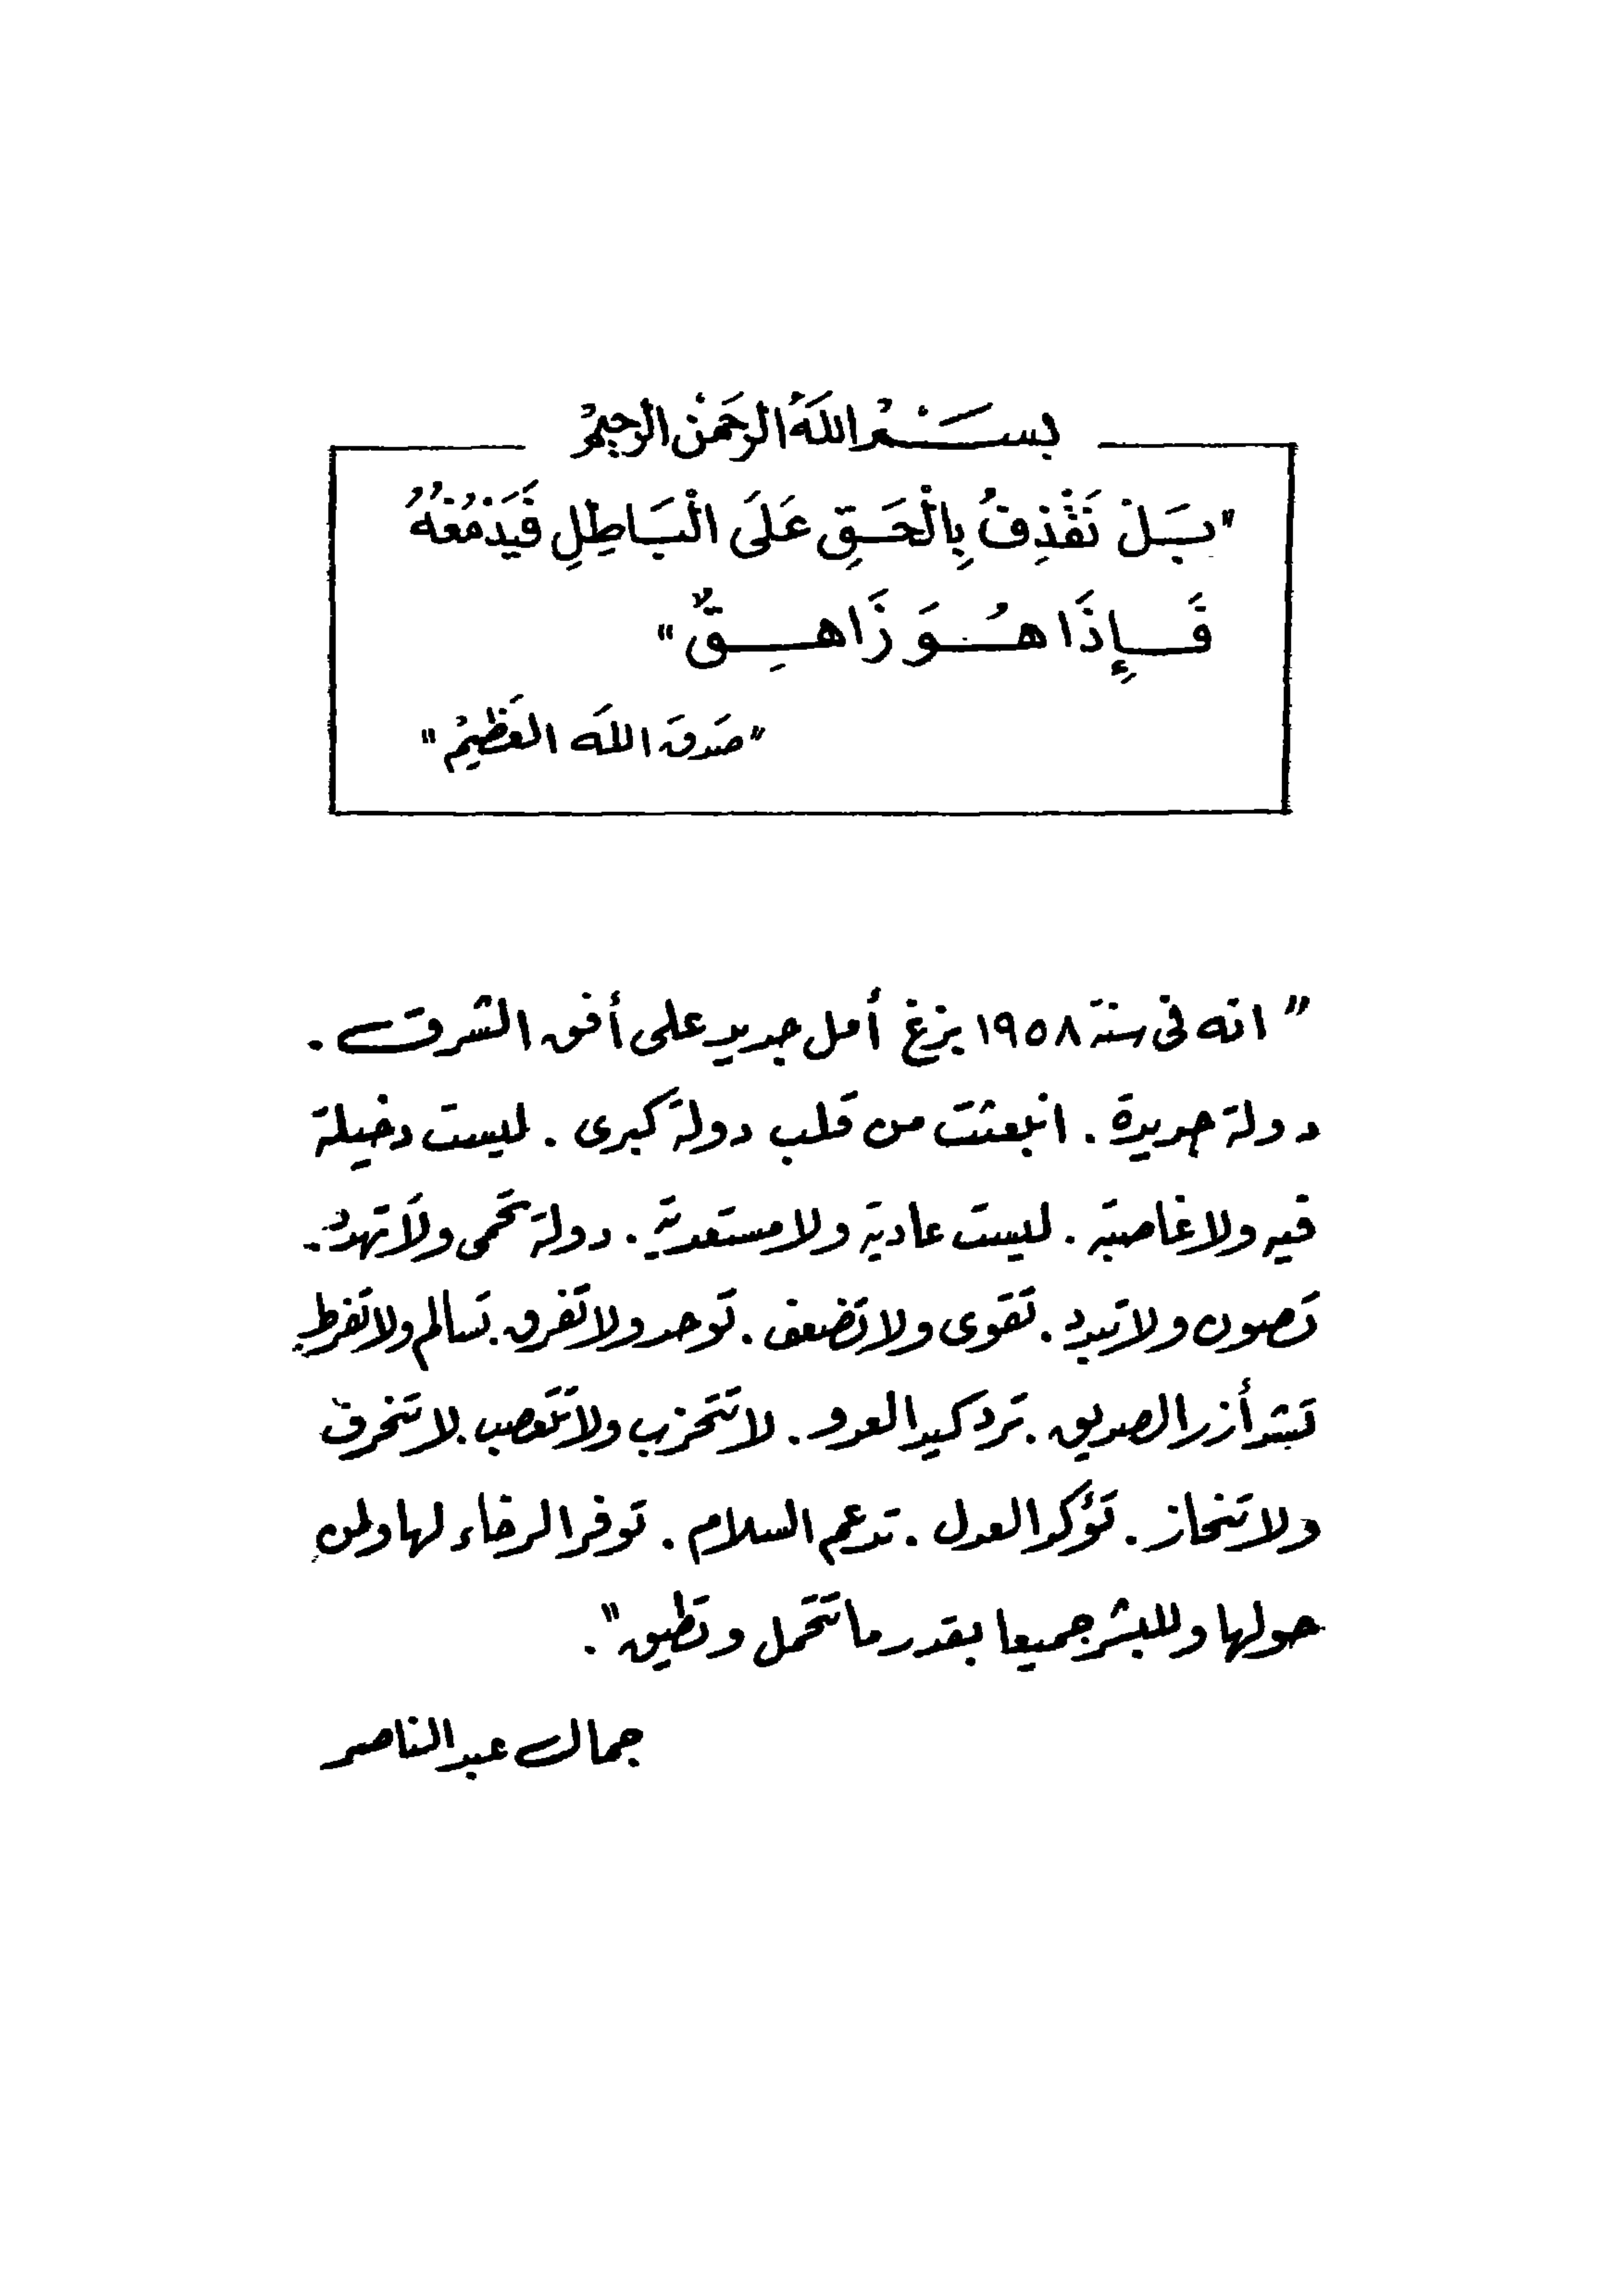 بسم الله الرحمن الرحيم
"بَلْ نَقْذِفُ بِالْحَقِّ عَلَى الْبَاطِلِ فَيَدْمَغُهُ
فَإِذَا هُوَ زَاهِقٌ"
"صَدَقَ اللهُ العَظِيمْ"
" انه فى سنة ١٩٥٨ بزغ أمل جديد على أفق الشرق .
دولة جديدة . انبعثت من قلب دولة كبرى . ليست دخيلة
فيه ولا غاصبة . ليست عادية ولا مستعدية . دولة تحمى ولا تهدد .
تصون ولا تبدد . تقوى ولا تضعف . توحد ولا تفرق . تسالم ولا تفرط
تشد أزر الصديق . ترد كيد العدو . لا تتحزب ولا تتعصب . لا تنحرف
ولا تنحاز . تؤكد العدل . تدعم السلام . توفر الرخاء لها ولمن
حولها وللبشر جميعا بقدر ما تتحمل وتطيق " .
جمال عبد الناصر